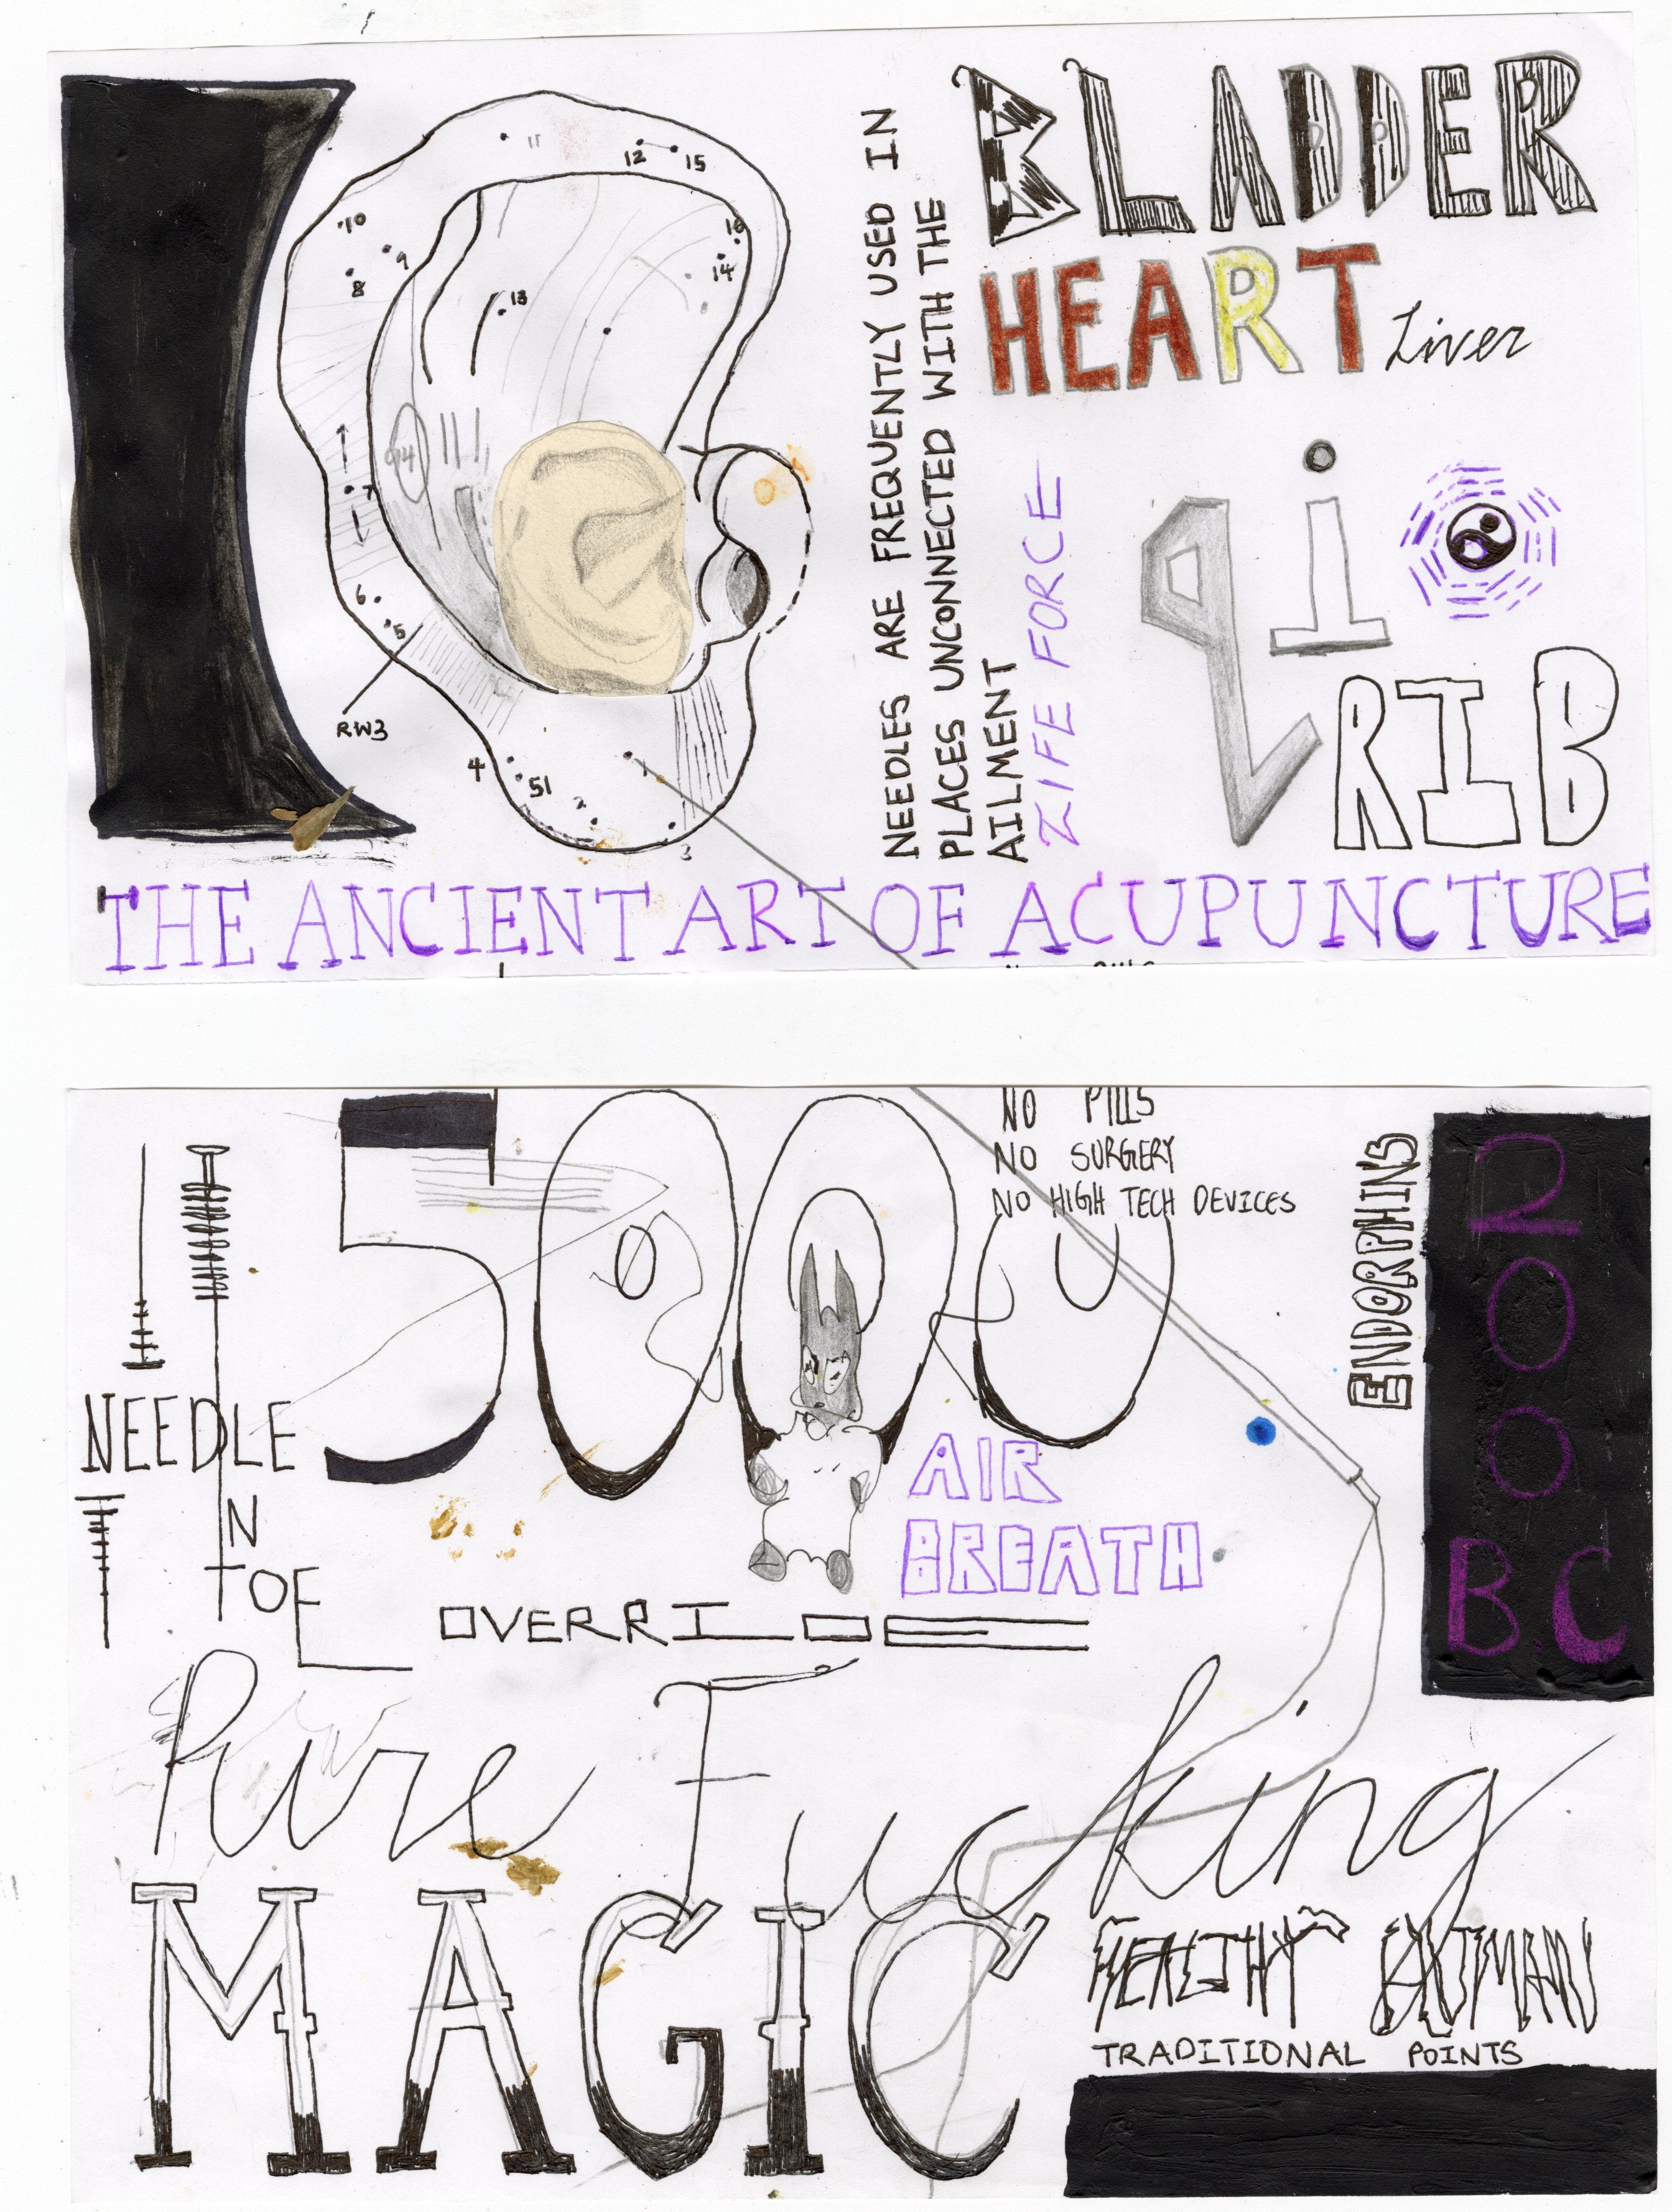 11
12
15
10
9
8
16
14
13
14
7
6
5
RW3
4
51
2
1
3
NEEDLES ARE FREQUENTLY USED IN
PLACES UNCONNECTED WITH THE
AILMENT
LIFE FORCE
BLADDER
HEART
Liver
qi
RIB
THE ANCIENT ART OF ACUPUNCTURE
5000
NO PILLS
NO SURGERY
NO HIGH TECH DEVICES
ENDORPHINS
200
BC
NEEDLE
IN
TOE
AIR
BREATH
OVERRIDE
Pure Fucking
MAGIC
HEALTHY HUMAN
TRADITIONAL POINTS